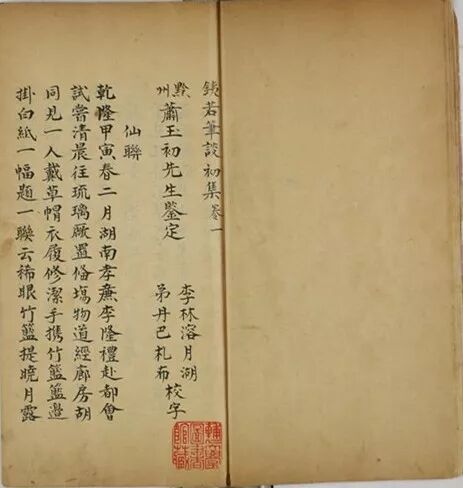 銕若筆談初集卷一
黔州蕭玉初先生鑒定
李林溶月湖
弟丹巴札布
校字
仙聯
乾隆甲寅春二月湖南孝廉李隆禮赴都會
試嘗清晨往琉璃廠置俻塲物道經廊房胡
同見一人戴草帽衣履修潔手携竹籃籃邉
掛白紙一幅題一聯云稀眼竹籃提曉月露